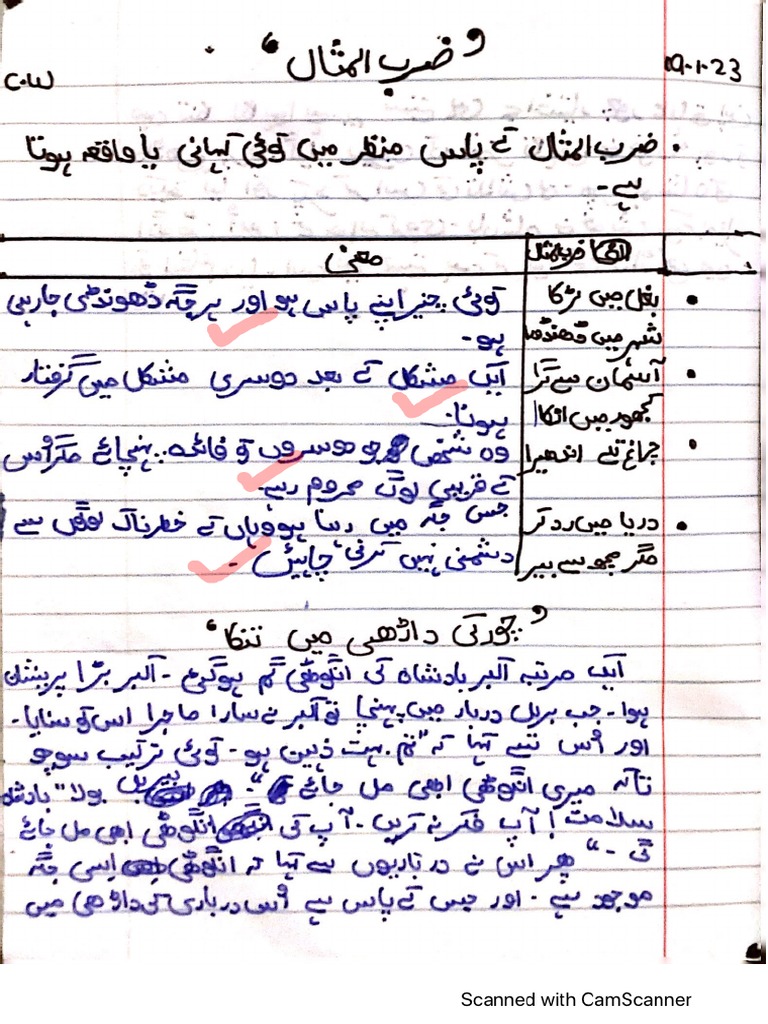 19.1.23
"ضرب المثال"
C.W
• ضرب المثال کے پاس منظر میں کوئی کہانی یا واقعہ ہوتا
ہے۔
ضرب المثال معنی
• بغل میں لڑکا کوئی چیز اپنے پاس ہو اور ہر جگہ ڈھونڈی جارہی
شہر میں ڈھنڈورا ہو۔
• آسمان سے گرا ایک مشکل کے بعد دوسری مشکل میں گرفتار
کھجور میں اٹکا ہونا۔
• چراغ تلے اندھیرا وہ شخص جو دوسروں کو فائدہ پہنچائے مگر اُس
کے قریبی لوگ محروم رہے۔
• دریا میں رہ کر جس جگہ میں رہنا ہو وہاں کے خطرناک لوگوں سے
مگر مچھ سے بیر دشمنی نہیں کرنی چاہیئں۔
"چور کی داڑھی میں تنکا"
ایک مرتبہ اکبر بادشاہ کی انگوٹھی گم ہوگئ۔ اکبر بڑا پریشان
ہوا۔ جب بربل دربار میں پہنچا تو اکبر نے سارا ماجرا اس کو سنایا۔
اور اُس سے کہا کہ "تم بہت ذہین ہو۔ کوئی ترکیب سوچو
تاکہ میری انگوٹھی ابھی مل جائے"۔ بیربل بولا "بادشاہ
سلامت! آپ فکر نہ کریں۔ آپ کی انگوٹھی ابھی مل جائے
گی۔" پھر اس نے درباریوں سے کہا کہ انگوٹھی اسی جگہ
موجود ہے۔ اور جس کے پاس ہے اُس درباری کی داڑھی میں
Scanned with CamScanner